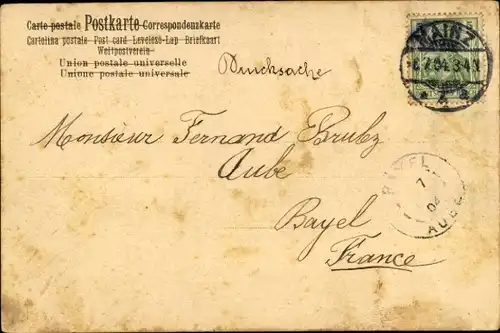 Carte postale Postkarte Correspondenzkarte
Cartolina postale Post card Levelező-Lap Briefkaart
Weltpostverein
Union postale universelle
Unione postale universale
Drucksache
MAINZ
6.7.04.3-4N
Monsieur Fernand Brulez
Aube
Bayel
France
BAYEL
7
04
AUBE